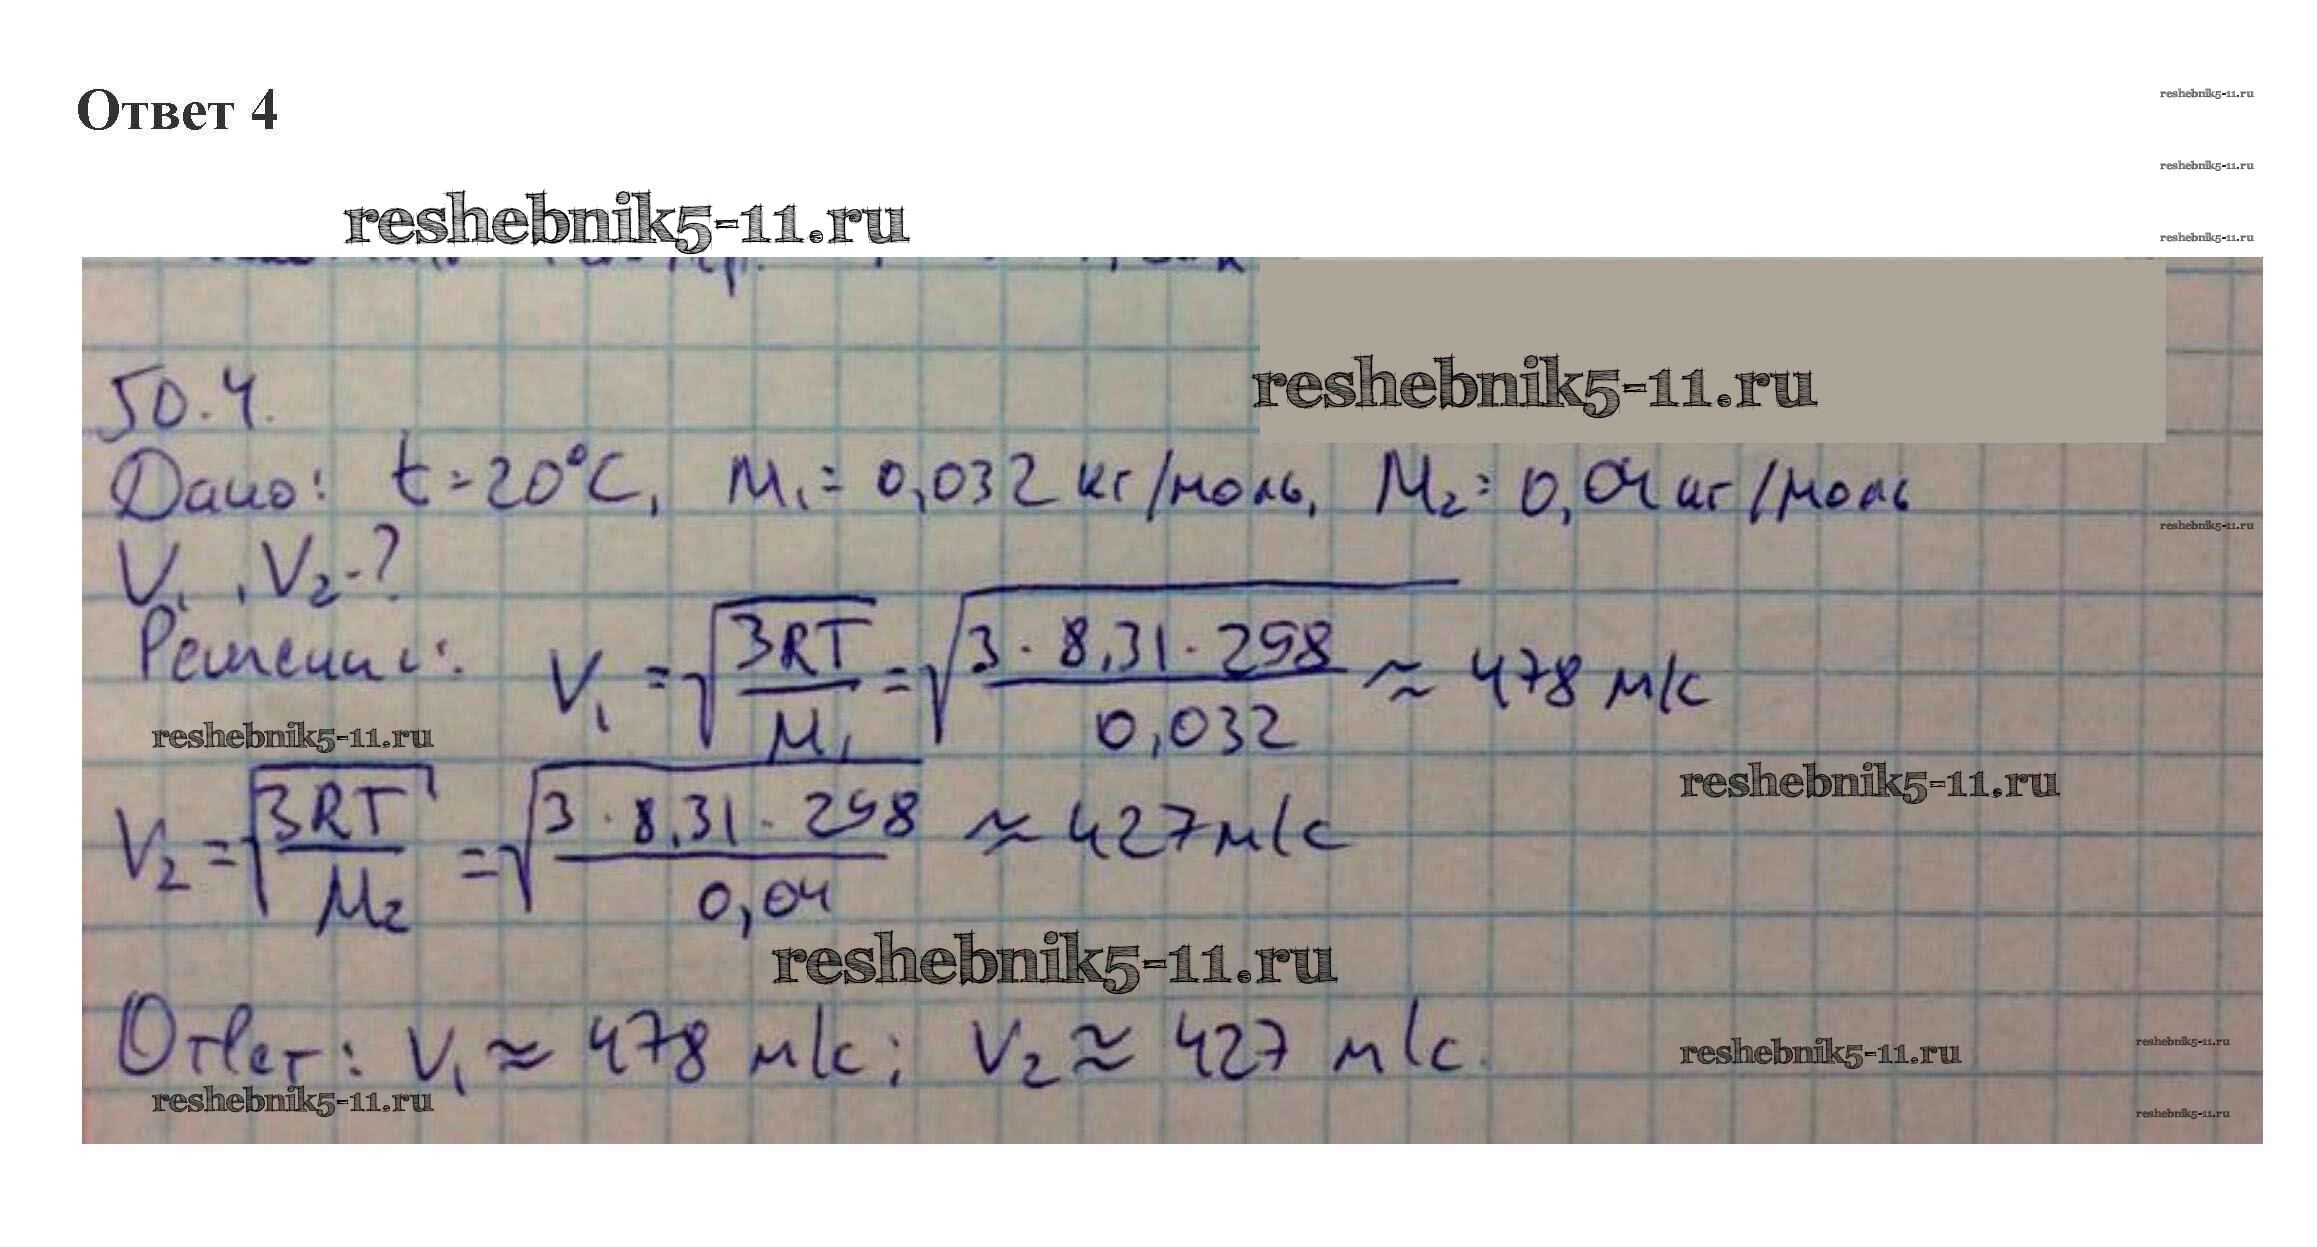 Ответ 4
reshebnik5-11.ru
reshebnik5-11.ru
reshebnik5-11.ru
reshebnik5-11.ru
50.4.
reshebnik5-11.ru
Дано: t = 20°C, M₁ = 0,032 кг/моль, M₂ = 0,04 кг/моль
reshebnik5-11.ru
V₁, V₂ - ?
Решение: V₁ = √(3RT/M₁) = √(3 · 8,31 · 298/0,032) ≈ 478 м/с
reshebnik5-11.ru
reshebnik5-11.ru
V₂ = √(3RT/M₂) = √(3 · 8,31 · 298/0,04) ≈ 427 м/с
reshebnik5-11.ru
Ответ: V₁ ≈ 478 м/с; V₂ ≈ 427 м/с.
reshebnik5-11.ru
reshebnik5-11.ru
reshebnik5-11.ru
reshebnik5-11.ru